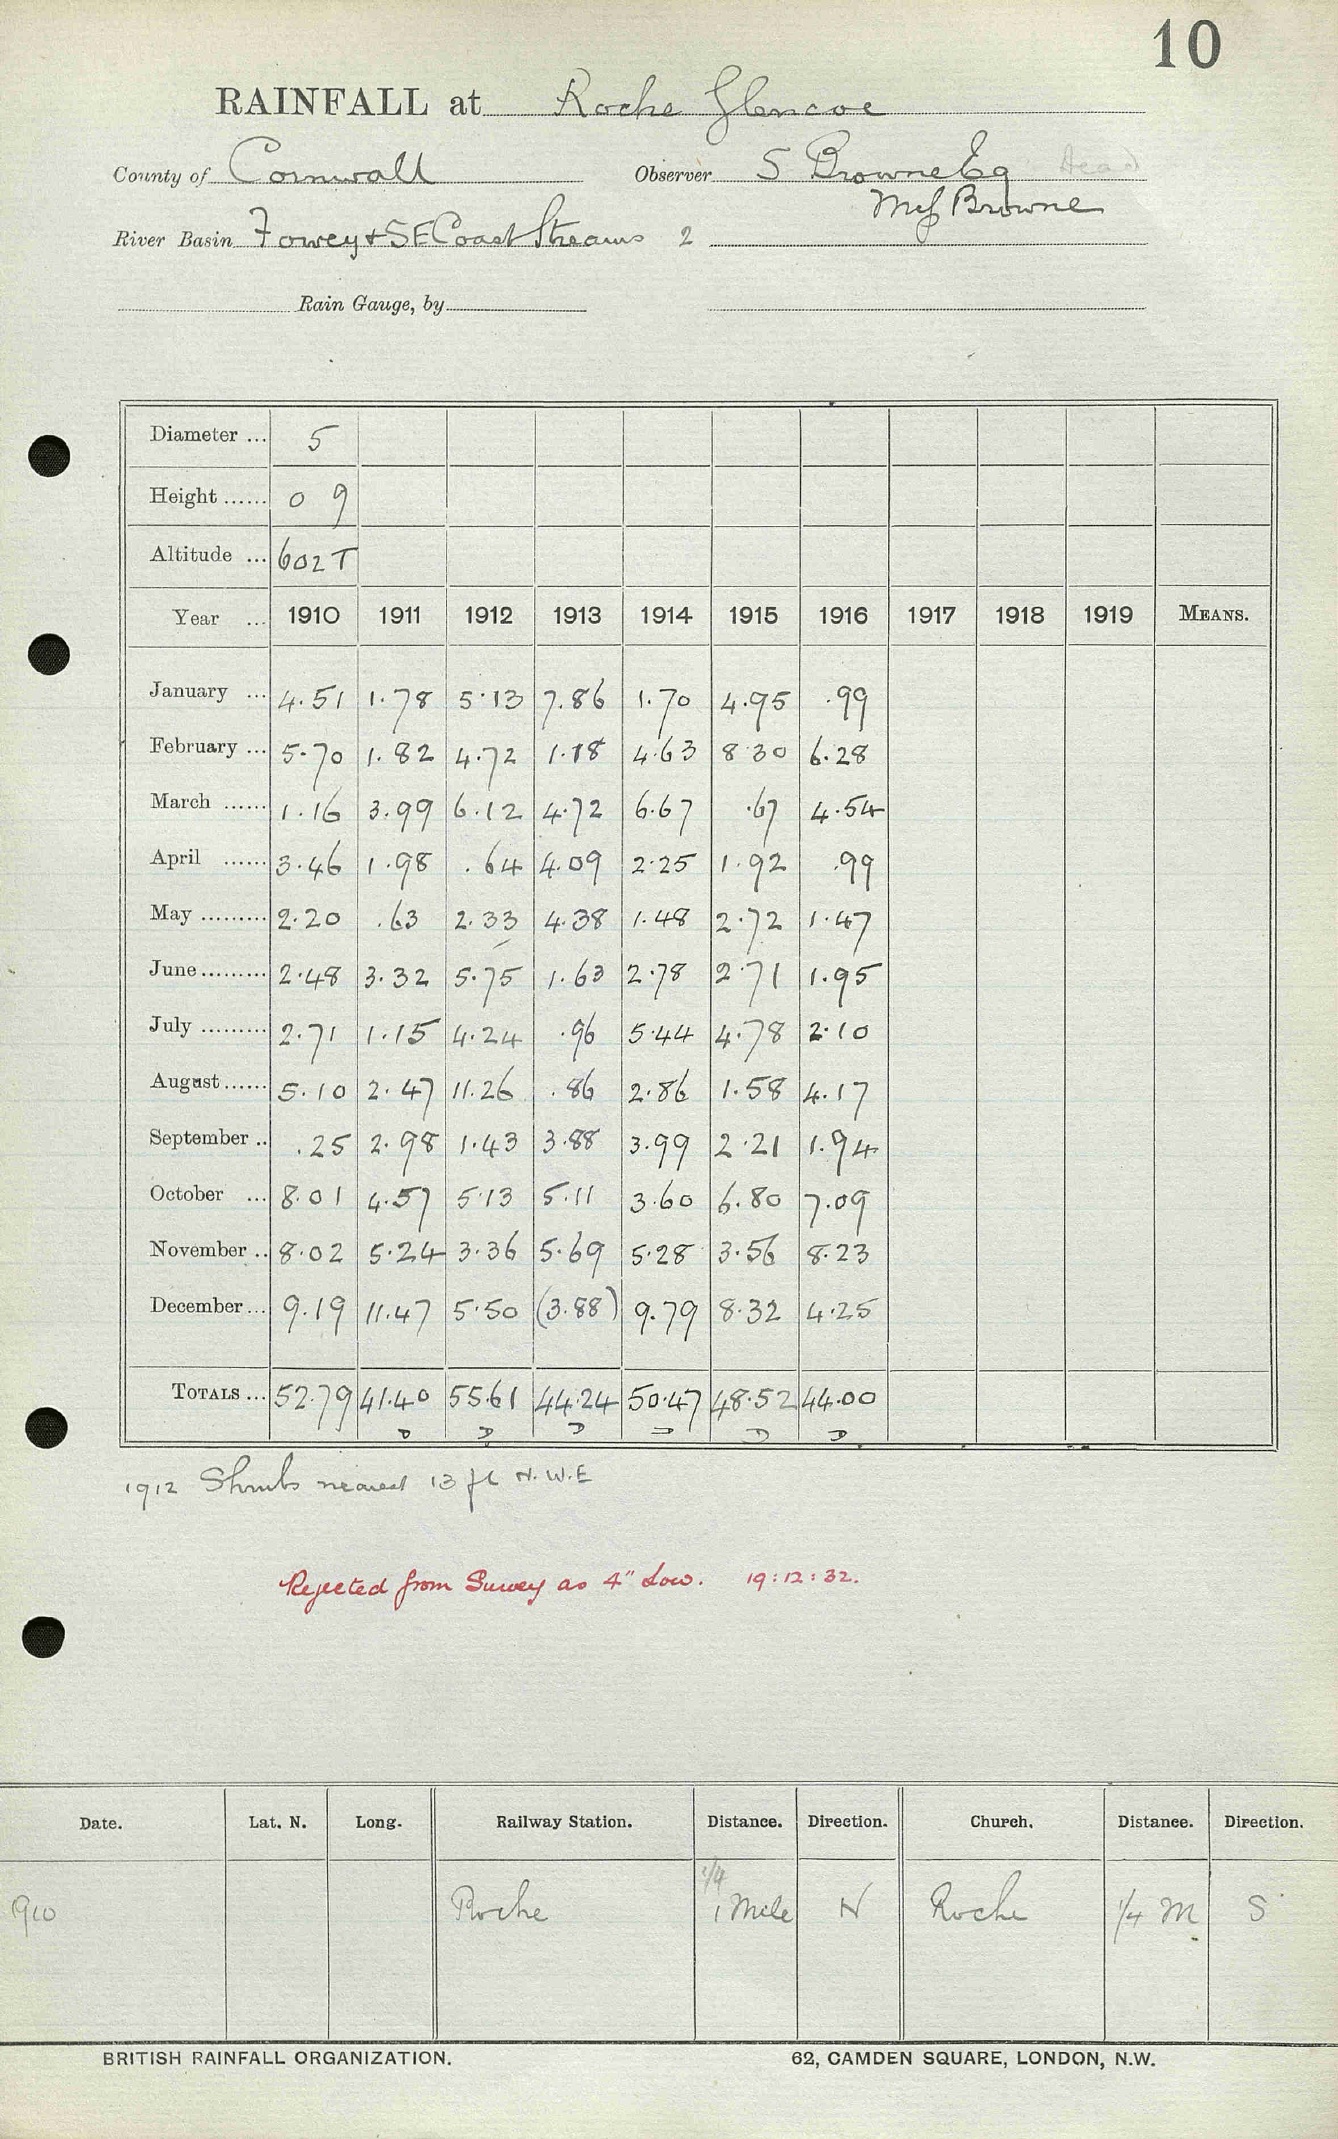 10
RAINFALL at Roche Glencoe
County of Cornwall Observer S Browne Esq Dead
Miss Browne
River Basin Fowey & SE Coast Streams 2
Rain Gauge, by
Diameter ... 5
Height ...... 0 9
Altitude ... 602 T
Year ... 1910 1911 1912 1913 1914 1915 1916 1917 1918 1919 MEANS.
January ... 4.51 1.78 5.13 7.86 1.70 4.95 .99
February ... 5.70 1.82 4.72 1.18 4.63 8 30 6.28
March ...... 1.16 3.99 6.12 4.72 6.67 .67 4.54
April ...... 3.46 1.98 .64 4.09 2.25 1.92 .99
May ......... 2.20 .63 2.33 4.38 1.48 2.72 1.47
June ......... 2.48 3.32 5.75 1.63 2.78 2.71 1.95
July ......... 2.71 1.15 4.24 .96 5.44 4.78 2.10
August ...... 5.10 2.47 11.26 .86 2.86 1.58 4.17
September .. .25 2.98 1.43 3.88 3.99 2.21 1.94
October ... 8.01 4.57 5.13 5.11 3.60 6.80 7.09
November .. 8.02 5.24 3.36 5.69 5.28 3.56 8.23
December ... 9.19 11.47 5.50 (3.88) 9.79 8.32 4.25
TOTALS ... 52.79 41.40 55.61 44.24 50.47 48.52 44.00
D D D D D D
1912 Shrubs nearest 13 ft N.W.E
Rejected from Survey as 4" Low. 19:12:32.
Date. Lat. N. Long. Railway Station. Distance. Direction. Church. Distance. Direction.
1/4
1910 Roche 1 Mile N Roche 1/4 M S
BRITISH RAINFALL ORGANIZATION. 62, CAMDEN SQUARE, LONDON, N.W.